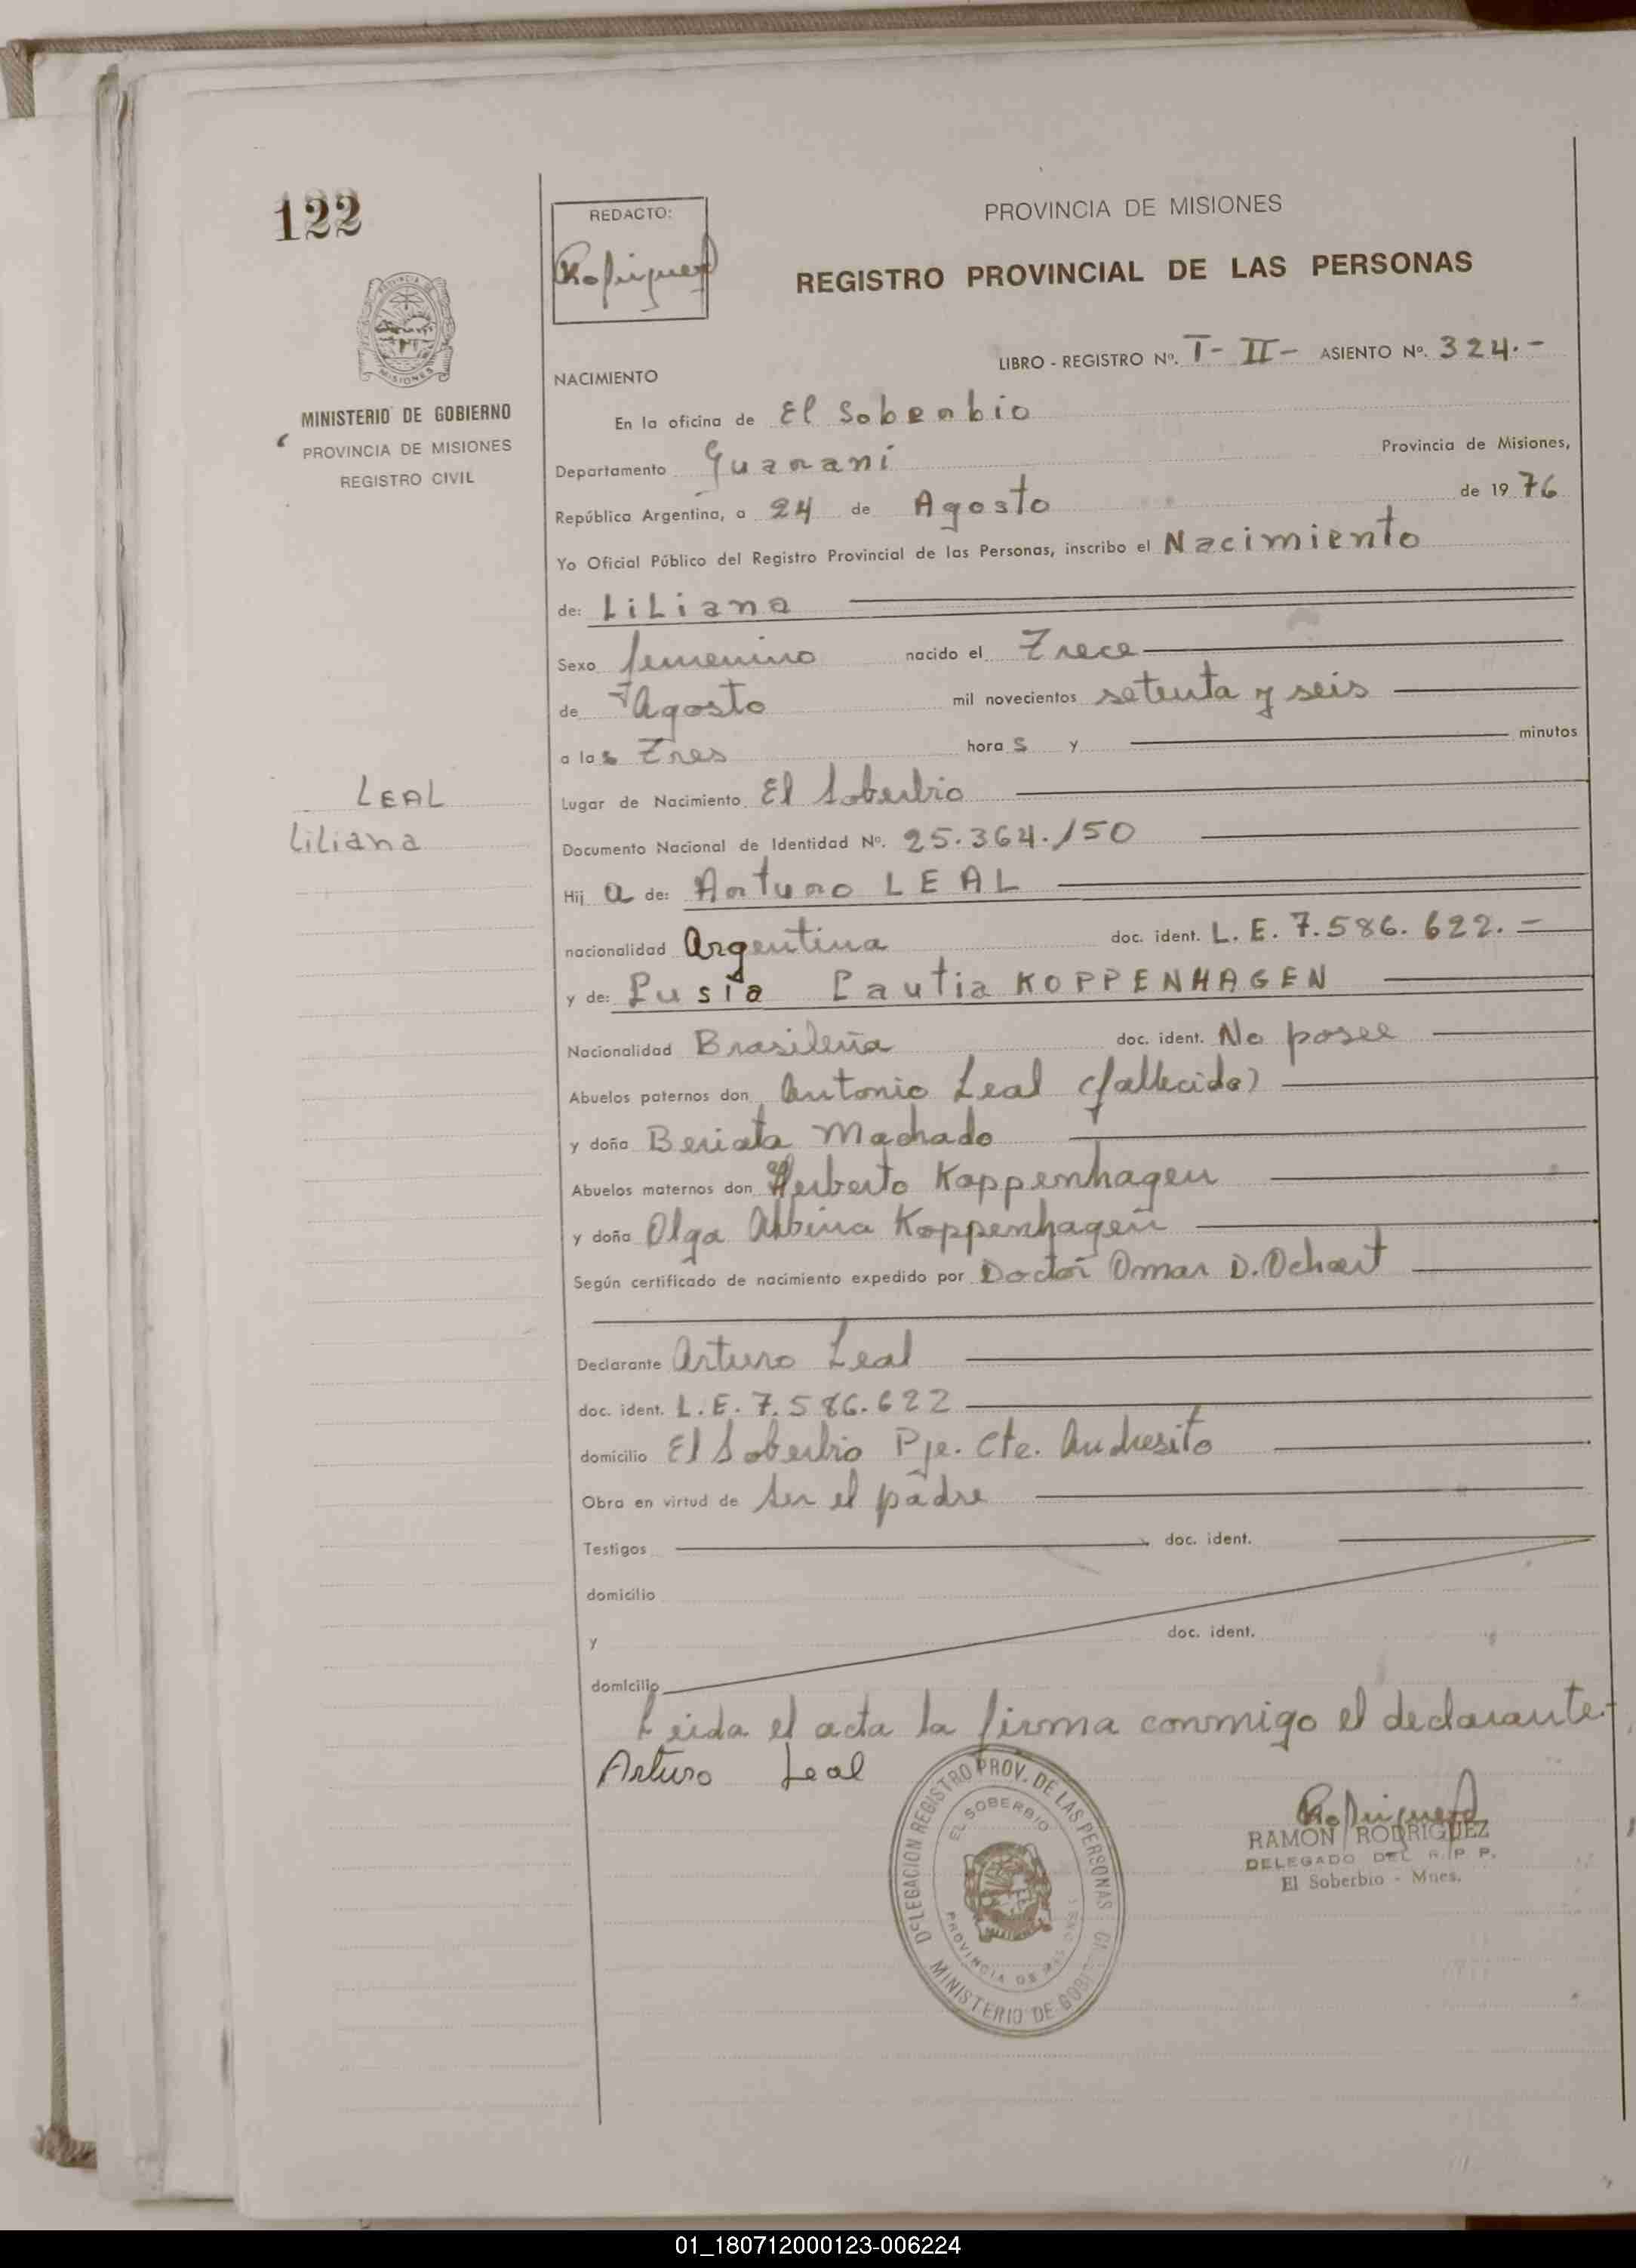 122
REDACTO:
Rodriguez
PROVINCIA DE MISIONES
REGISTRO PROVINCIAL DE LAS PERSONAS
LIBRO - REGISTRO Nº. T- II- ASIENTO Nº. 324.-
MINISTERIO DE GOBIERNO
PROVINCIA DE MISIONES
REGISTRO CIVIL
NACIMIENTO
En la oficina de El Soberbio
Departamento Guarani Provincia de Misiones,
República Argentina, a 24 de Agosto de 1976
Yo Oficial Público del Registro Provincial de las Personas, inscribo el Nacimiento
de: LiLiana
Sexo femenino nacido el Trece
de Agosto mil novecientos setenta y seis
a las Tres hora s y minutos
LEAL
Liliana
Lugar de Nacimiento El Soberbio
Documento Nacional de Identidad Nº. 25.364.150
Hij a de: Arturo LEAL
nacionalidad Argentina doc. ident. L. E. 7.586.622.=
y de: Lusia Lautia KOPPENHAGEN
Nacionalidad Brasileña doc. ident. No posee
Abuelos paternos don Antonio Leal (fallecido)
y doña Beriata Machado
Abuelos maternos don Herberto Koppenhagen
y doña Olga Albina Koppenhagen
Según certificado de nacimiento expedido por Doctor Omar D. Ochart
Declarante Arturo Leal
doc. ident. L. E. 7.586.622
domicilio El Soberbio Pje. Cte. Andresito
Obra en virtud de Ser el padre
Testigos doc. ident.
domicilio
y doc. ident.
domicilio
Leida el acta la firma conmigo el declarante.-
Arturo Leal
DELEGACION REGISTRO PROV. DE LAS PERSONAS
EL SOBERBIO
PROVINCIA DE MISIONES
MINISTERIO DE GOBIERNO
Rodriguez
RAMON RODRIGUEZ
DELEGADO DEL R. P. P.
El Soberbio - Mnes.
01_180712000123-006224